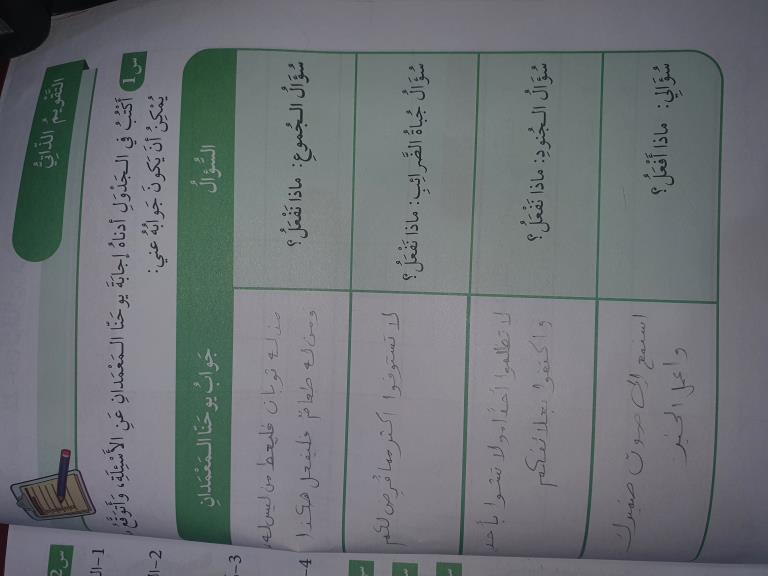 التَّقْويمُ الذّاتِيُّ
س1 أَكْتُبُ في الـجَدْوَلِ أَدناهُ إجابَةَ يوحَنّا الـمَعْمَدانِ عَنِ الأَسْئِلَةِ، وَأَتَوَقَّعُ
يُمْكِنُ أَنْ يَكونَ جَوابُهُ عَنّي:
السُّؤالُ
جَوابُ يوحَنّا الـمَعْمَدانِ
سُؤَالُ الـجُموعِ: ماذا نَفْعَلُ؟
من له ثوبان فليعط من ليس له
ومن له طعام فليفعل هكذا
سُؤَالُ جُباةُ الضَّرائِبِ: ماذا نَفْعَلُ؟
لا تستوفوا اكثر مما فرض لكم
سُؤَالُ الـجُنودِ: ماذا نَفْعَلُ؟
لا تظلموا احدا ولا تشوا بأحد
واكتفوا بعلائفكم
سُؤَالي: ماذا أَفْعَلُ؟
استمع الى صوت ضميرك
واعمل الخير
س2
1-
2-
3-
4-
س
س
س